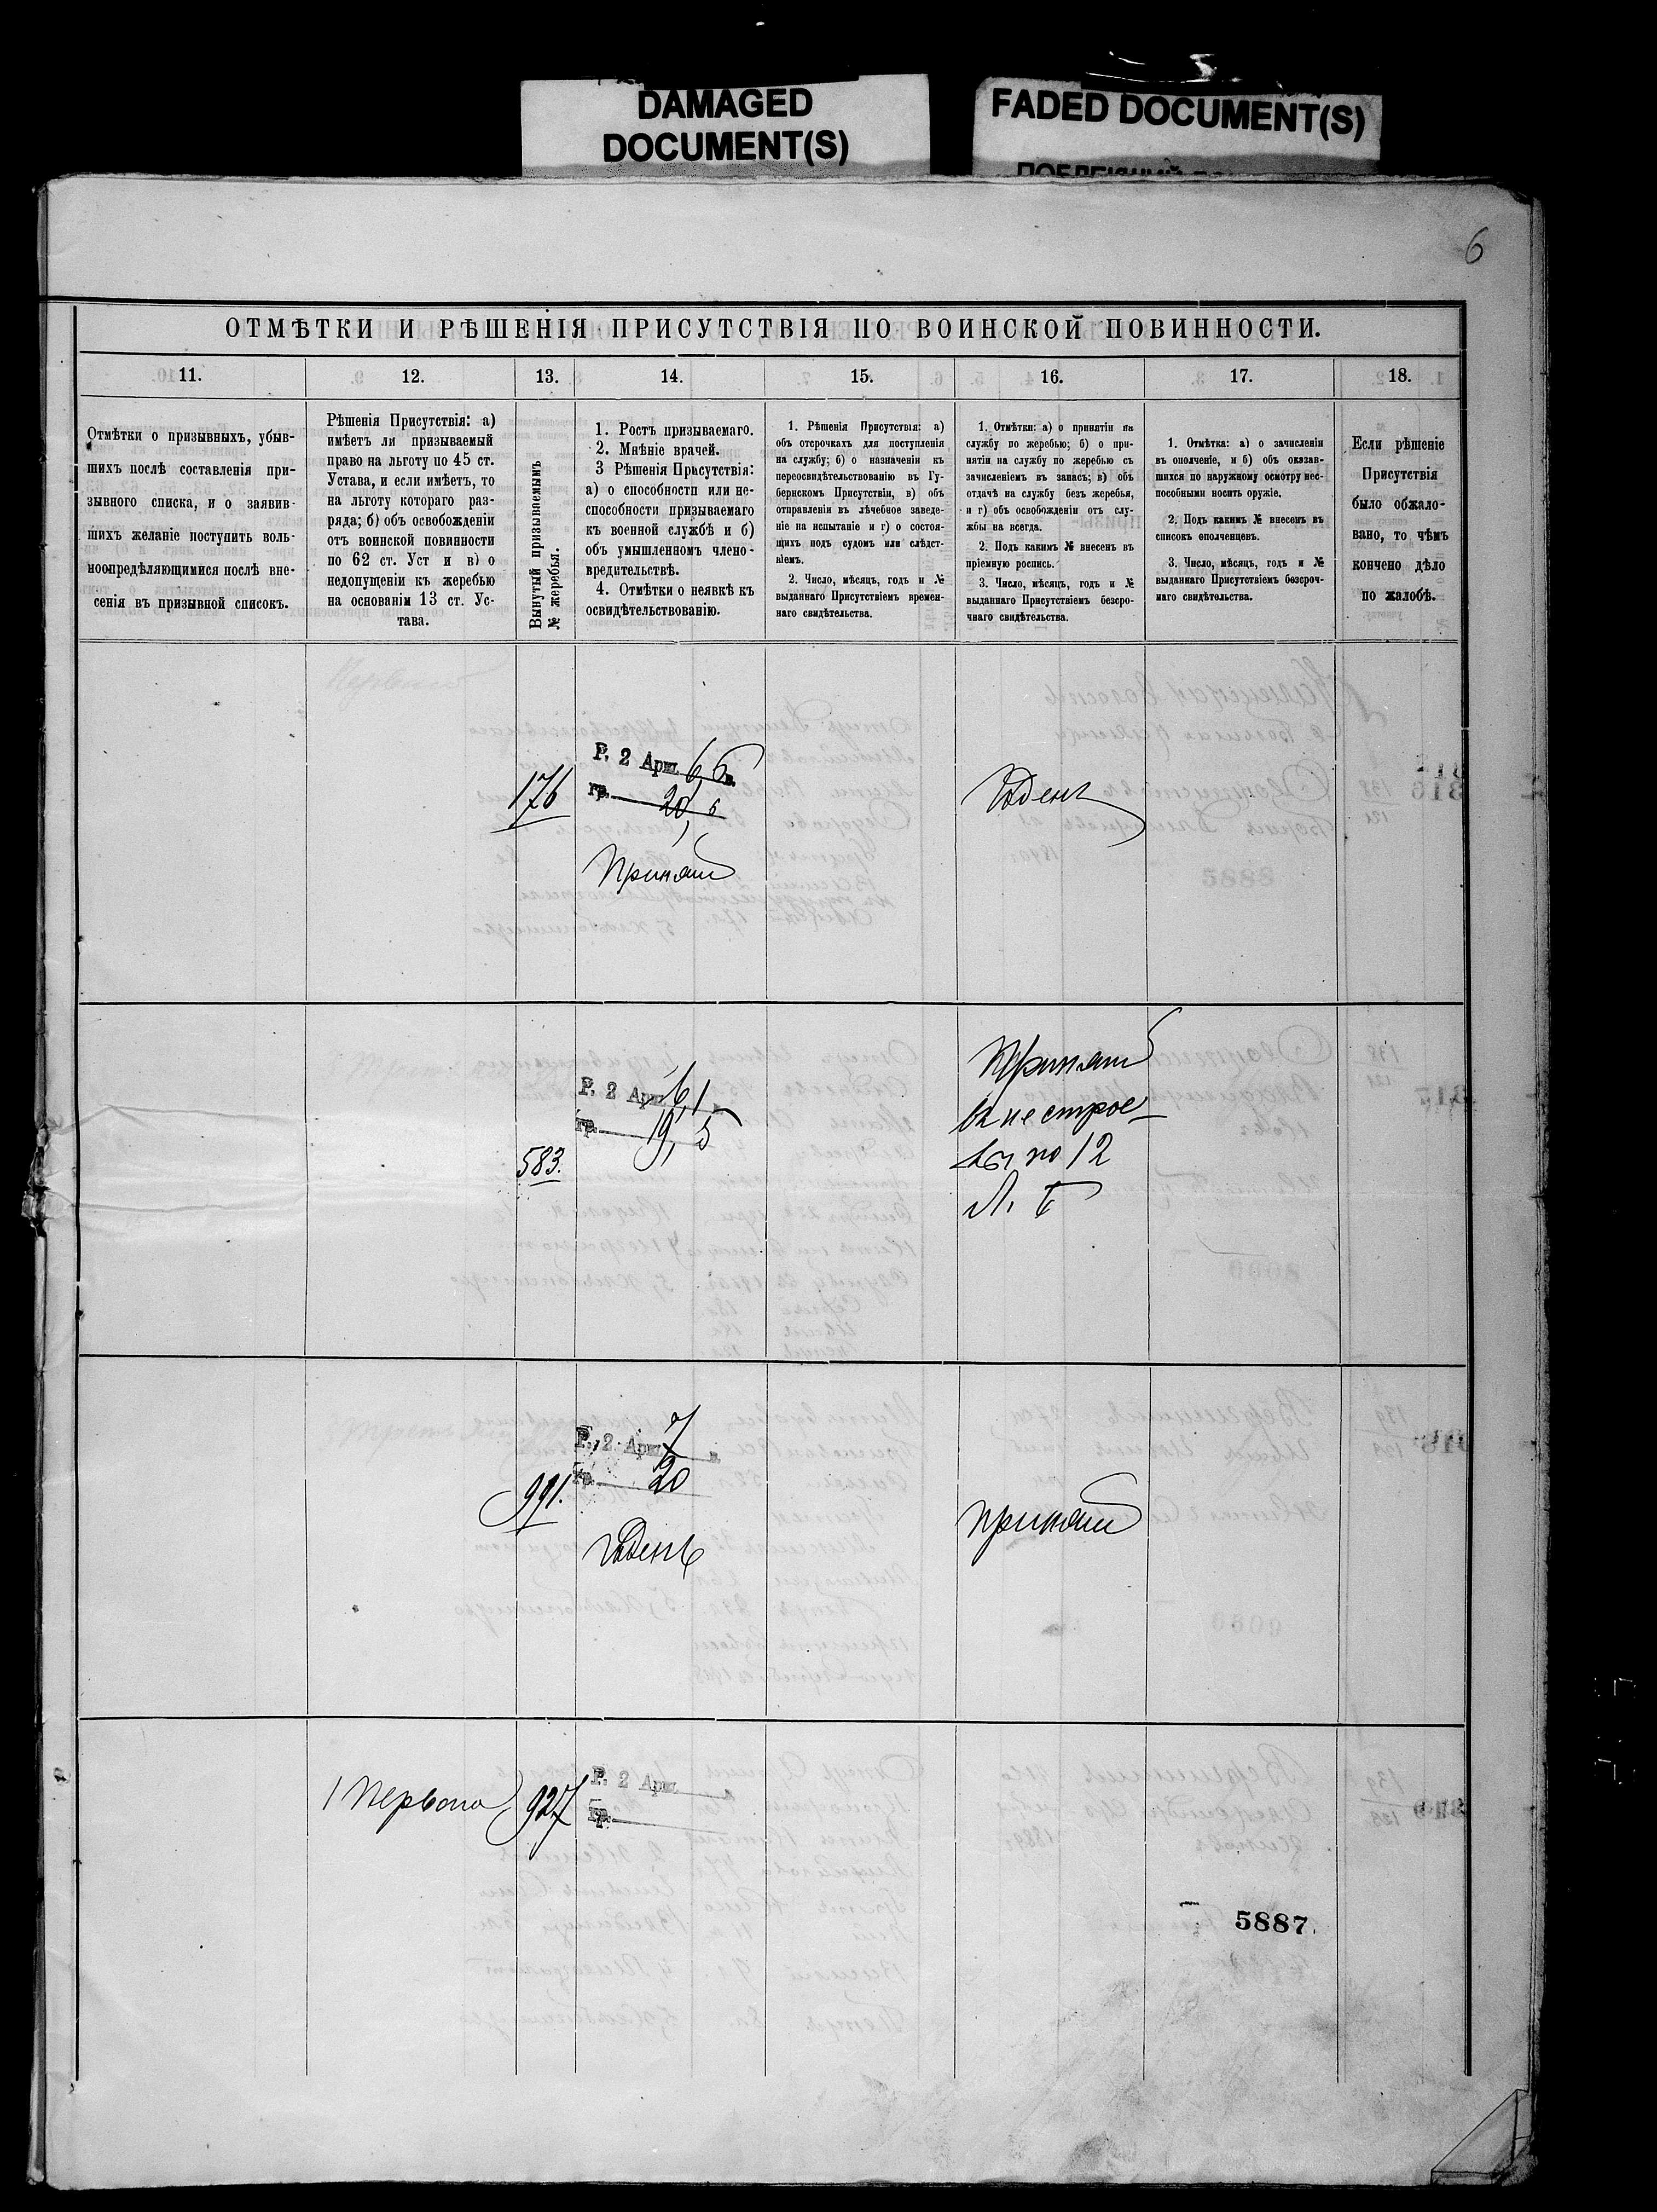 DAMAGED
DOCUMENT(S)
FADED DOCUMENT(S)
6
ОТМѢТКИ И РѢШЕНІЯ ПРИСУТСТВІЯ ПО ВОИНСКОЙ ПОВИННОСТИ.
11.
Отмѣтки о призывныхъ, убыв-
шихъ послѣ составленія при-
зывного списка, и о заявив-
шихъ желаніе поступить воль-
ноопредѣляющимися послѣ вне-
сенія въ призывной списокъ.
12.
Рѣшенія Присутствія: а)
имѣетъ ли призываемый
право на льготу по 45 ст.
Устава, и если имѣетъ, то
на льготу котораго раз-
ряда; б) объ освобожденіи
отъ воинской повинности
по 62 ст. Уст и в) о
недопущеніи къ жеребью
на основаніи 13 ст. Ус-
тава.
13.
Вынутый призываемымъ
№ жеребья.
14.
1. Ростъ призываемаго.
2. Мнѣніе врачей.
3 Рѣшенія Присутствія:
а) о способности или не-
способности призываемаго
къ военной службѣ и б)
объ умышленномъ члено-
вредительствѣ.
4. Отмѣтки о неявкѣ къ
освидѣтельствованію.
15.
1. Рѣшенія Присутствія: а)
объ отсрочкахъ для поступленія
на службу; б) о назначеніи къ
переосвидѣтельствованію въ Гу-
бернскомъ Присутствіи, в) объ
отправленіи въ лѣчебное заведе-
ніе на испытаніе и г) о состоя-
щихъ подъ судомъ или слѣдст-
віемъ.
2. Число, мѣсяцъ, годъ и №
выданнаго Присутствіемъ времен-
наго свидѣтельства.
16.
1. Отмѣтки: а) о принятіи на
службу по жеребью; б) о при-
нятіи на службу по жеребью съ
зачисленіемъ въ запасъ; в) объ
отдачѣ на службу безъ жеребья,
и г) объ освобожденіи отъ слу-
жбы на всегда.
2. Подъ какимъ № внесенъ въ
пріемную роспись.
3. Число, мѣсяцъ, годъ и №
выданнаго Присутствіемъ безсро-
чнаго свидѣтельства.
17.
1. Отмѣтка: а) о зачисленіи
въ ополченіе, и б) объ оказав-
шихся по наружному осмотру нес-
пособными носить оружіе.
2. Подъ какимъ № внесенъ въ
списокъ ополченцевъ.
3. Число, мѣсяцъ, годъ и №
выданнаго Присутствіемъ безсроч-
наго свидѣтельства.
18.
Если рѣшеніе
Присутствія
было обжало-
вано, то чѣмъ
кончено дѣло
по жалобѣ.
176
Р. 2 Арш. 6,6 в.
гр. 20,6
Принятъ
Годенъ
583.
Р. 2 Арш. 6,1 в.
гр. 19,5
Принятъ
въ нестрое-
вы по 12
Л. Б
991.
Р. 2 Арш. 7 в.
гр. 20
годенъ
принятъ
1 Первого
927
Р. 2 Арш. в.
гр.
5887.